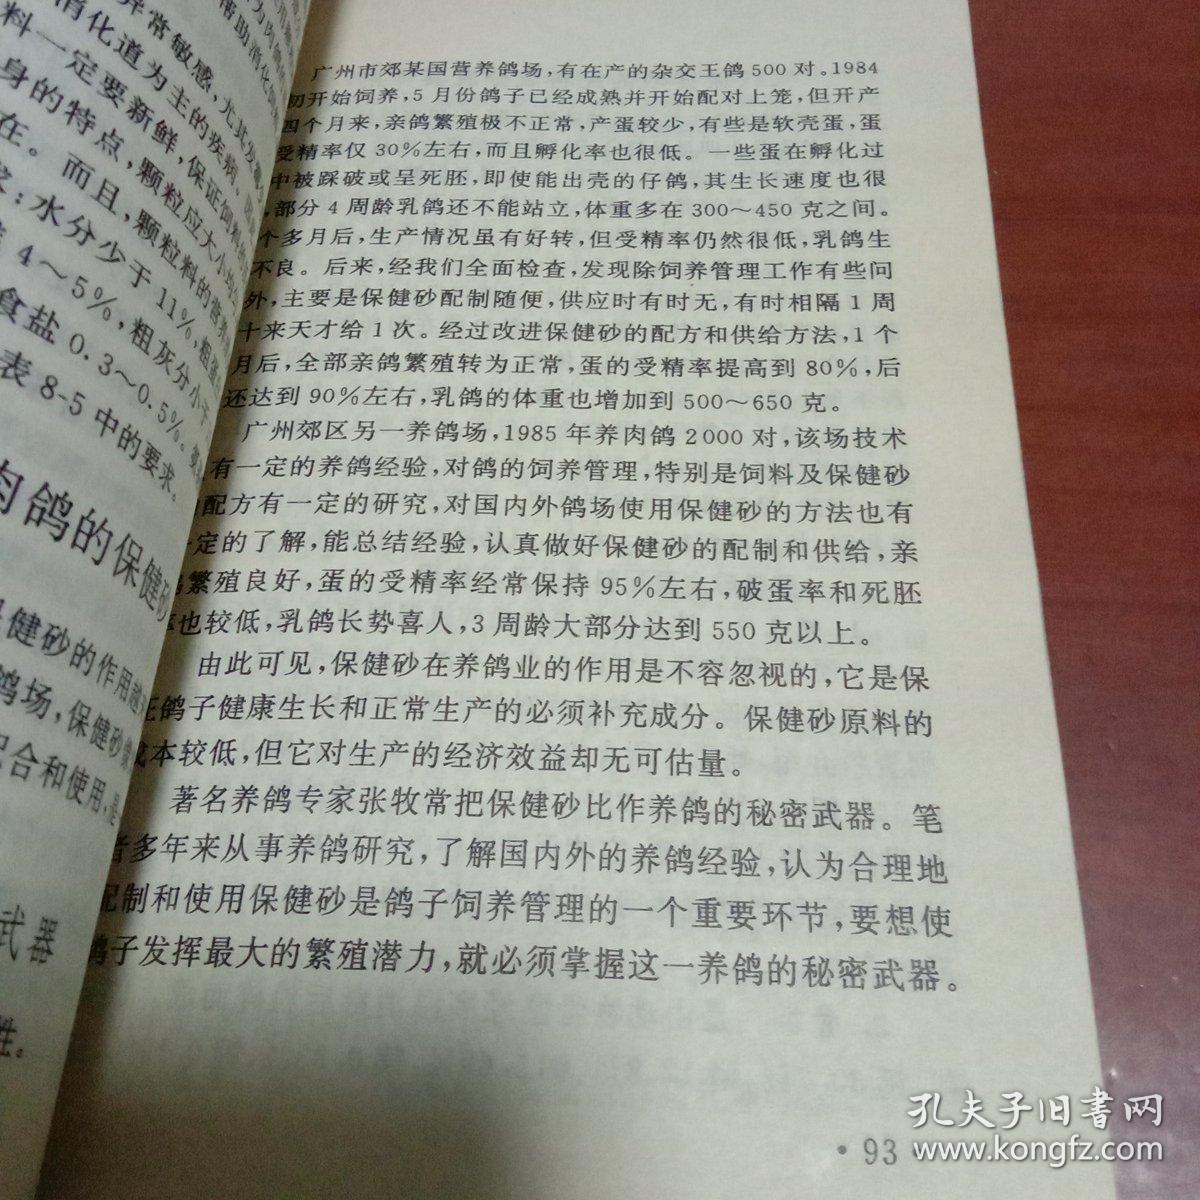 异常敏感,尤其发霉
消化道为主的疾病。
料一定要新鲜,保证饲料的
身的特点,颗粒应大小
在。而且,颗粒料的营养
:水分少于11%,粗蛋
4~5%,粗灰分小于
食盐0.3~0.5%。
表8-5中的要求。
肉鸽的保健砂
健砂的作用
鸽场,保健砂
合和使用,是
武器
性。
广州市郊某国营养鸽场,有在产的杂交王鸽500对。1984
初开始饲养,5月份鸽子已经成熟并开始配对上笼,但开产
四个月来,亲鸽繁殖极不正常,产蛋较少,有些是软壳蛋,蛋
受精率仅30%左右,而且孵化率也很低。一些蛋在孵化过
中被踩破或呈死胚,即使能出壳的仔鸽,其生长速度也很
,部分4周龄乳鸽还不能站立,体重多在300~450克之间。
个多月后,生产情况虽有好转,但受精率仍然很低,乳鸽生
不良。后来,经我们全面检查,发现除饲养管理工作有些问
外,主要是保健砂配制随便,供应时有时无,有时相隔1周
十来天才给1次。经过改进保健砂的配方和供给方法,1个
月后,全部亲鸽繁殖转为正常,蛋的受精率提高到80%,后
还达到90%左右,乳鸽的体重也增加到500~650克。
广州郊区另一养鸽场,1985年养肉鸽2000对,该场技术
有一定的养鸽经验,对鸽的饲养管理,特别是饲料及保健砂
配方有一定的研究,对国内外鸽场使用保健砂的方法也有
一定的了解,能总结经验,认真做好保健砂的配制和供给,亲
繁殖良好,蛋的受精率经常保持95%左右,破蛋率和死胚
率也较低,乳鸽长势喜人,3周龄大部分达到550克以上。
由此可见,保健砂在养鸽业的作用是不容忽视的,它是保
证鸽子健康生长和正常生产的必须补充成分。保健砂原料的
成本较低,但它对生产的经济效益却无可估量。
著名养鸽专家张牧常把保健砂比作养鸽的秘密武器。笔
者多年来从事养鸽研究,了解国内外的养鸽经验,认为合理地
配制和使用保健砂是鸽子饲养管理的一个重要环节,要想使
鸽子发挥最大的繁殖潜力,就必须掌握这一养鸽的秘密武器。
·93·
孔夫子旧书网
www.kongfz.com